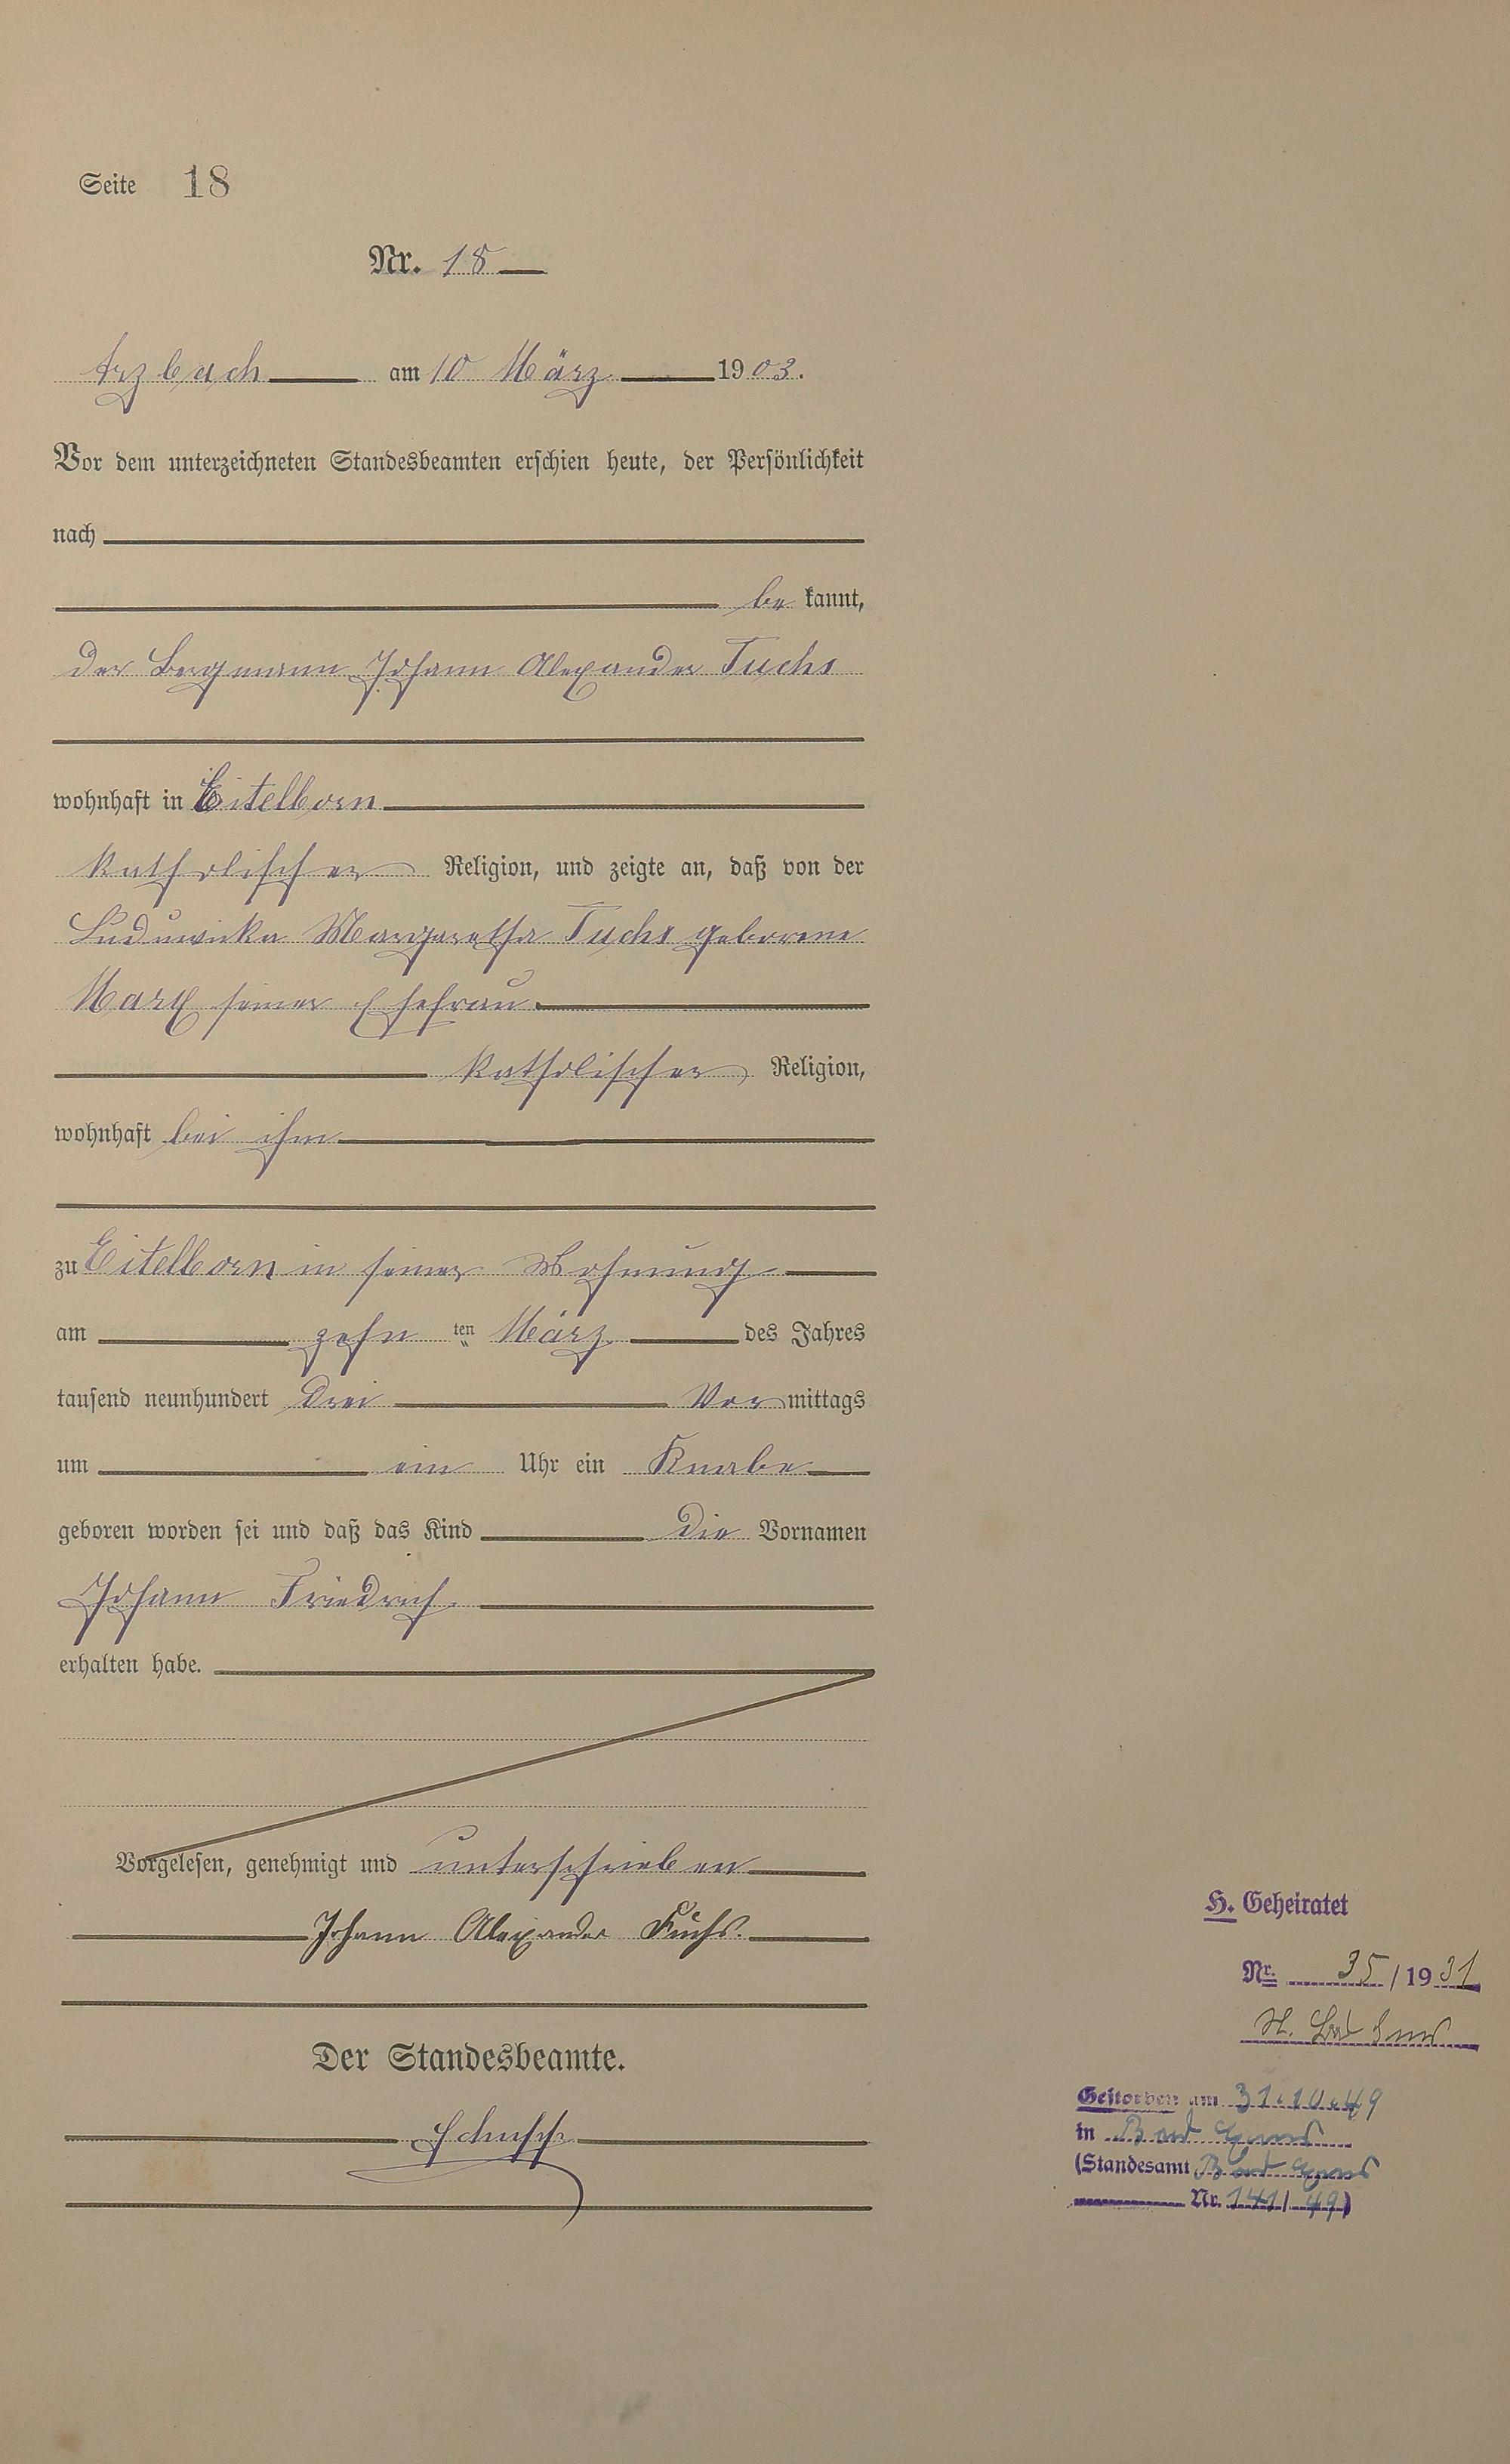 Seite 18
Nr. 18
Arzbach am 10 März 1903.
Vor dem unterzeichneten Standesbeamten erschien heute, der Persönlichkeit
nach
be kannt,
der Bergmann Johann Alexander Fuchs
wohnhaft in Eitelborn
katholischer Religion, und zeigte an, daß von der
Luduwicka Margaretha Fuchs geborene
Marx seiner Ehefrau
katholischer Religion,
wohnhaft bei ihm
zu Eitelborn in seiner Wohnung
am zehn ten März des Jahres
tausend neunhundert drei Vormittags
um ein Uhr ein Knabe
geboren worden sei und daß das Kind die Vornamen
Johann Friedrich
erhalten habe.
Vorgelesen, genehmigt und unterschrieben
Johann Alexander Fuchs.
Der Standesbeamte.
H. Geheiratet
Nr. 35/1931
St. Bad Ems
Gestorben am 31.10.49
in Bad Ems
(Standesamt Bad Ems
Nr. 141/49)